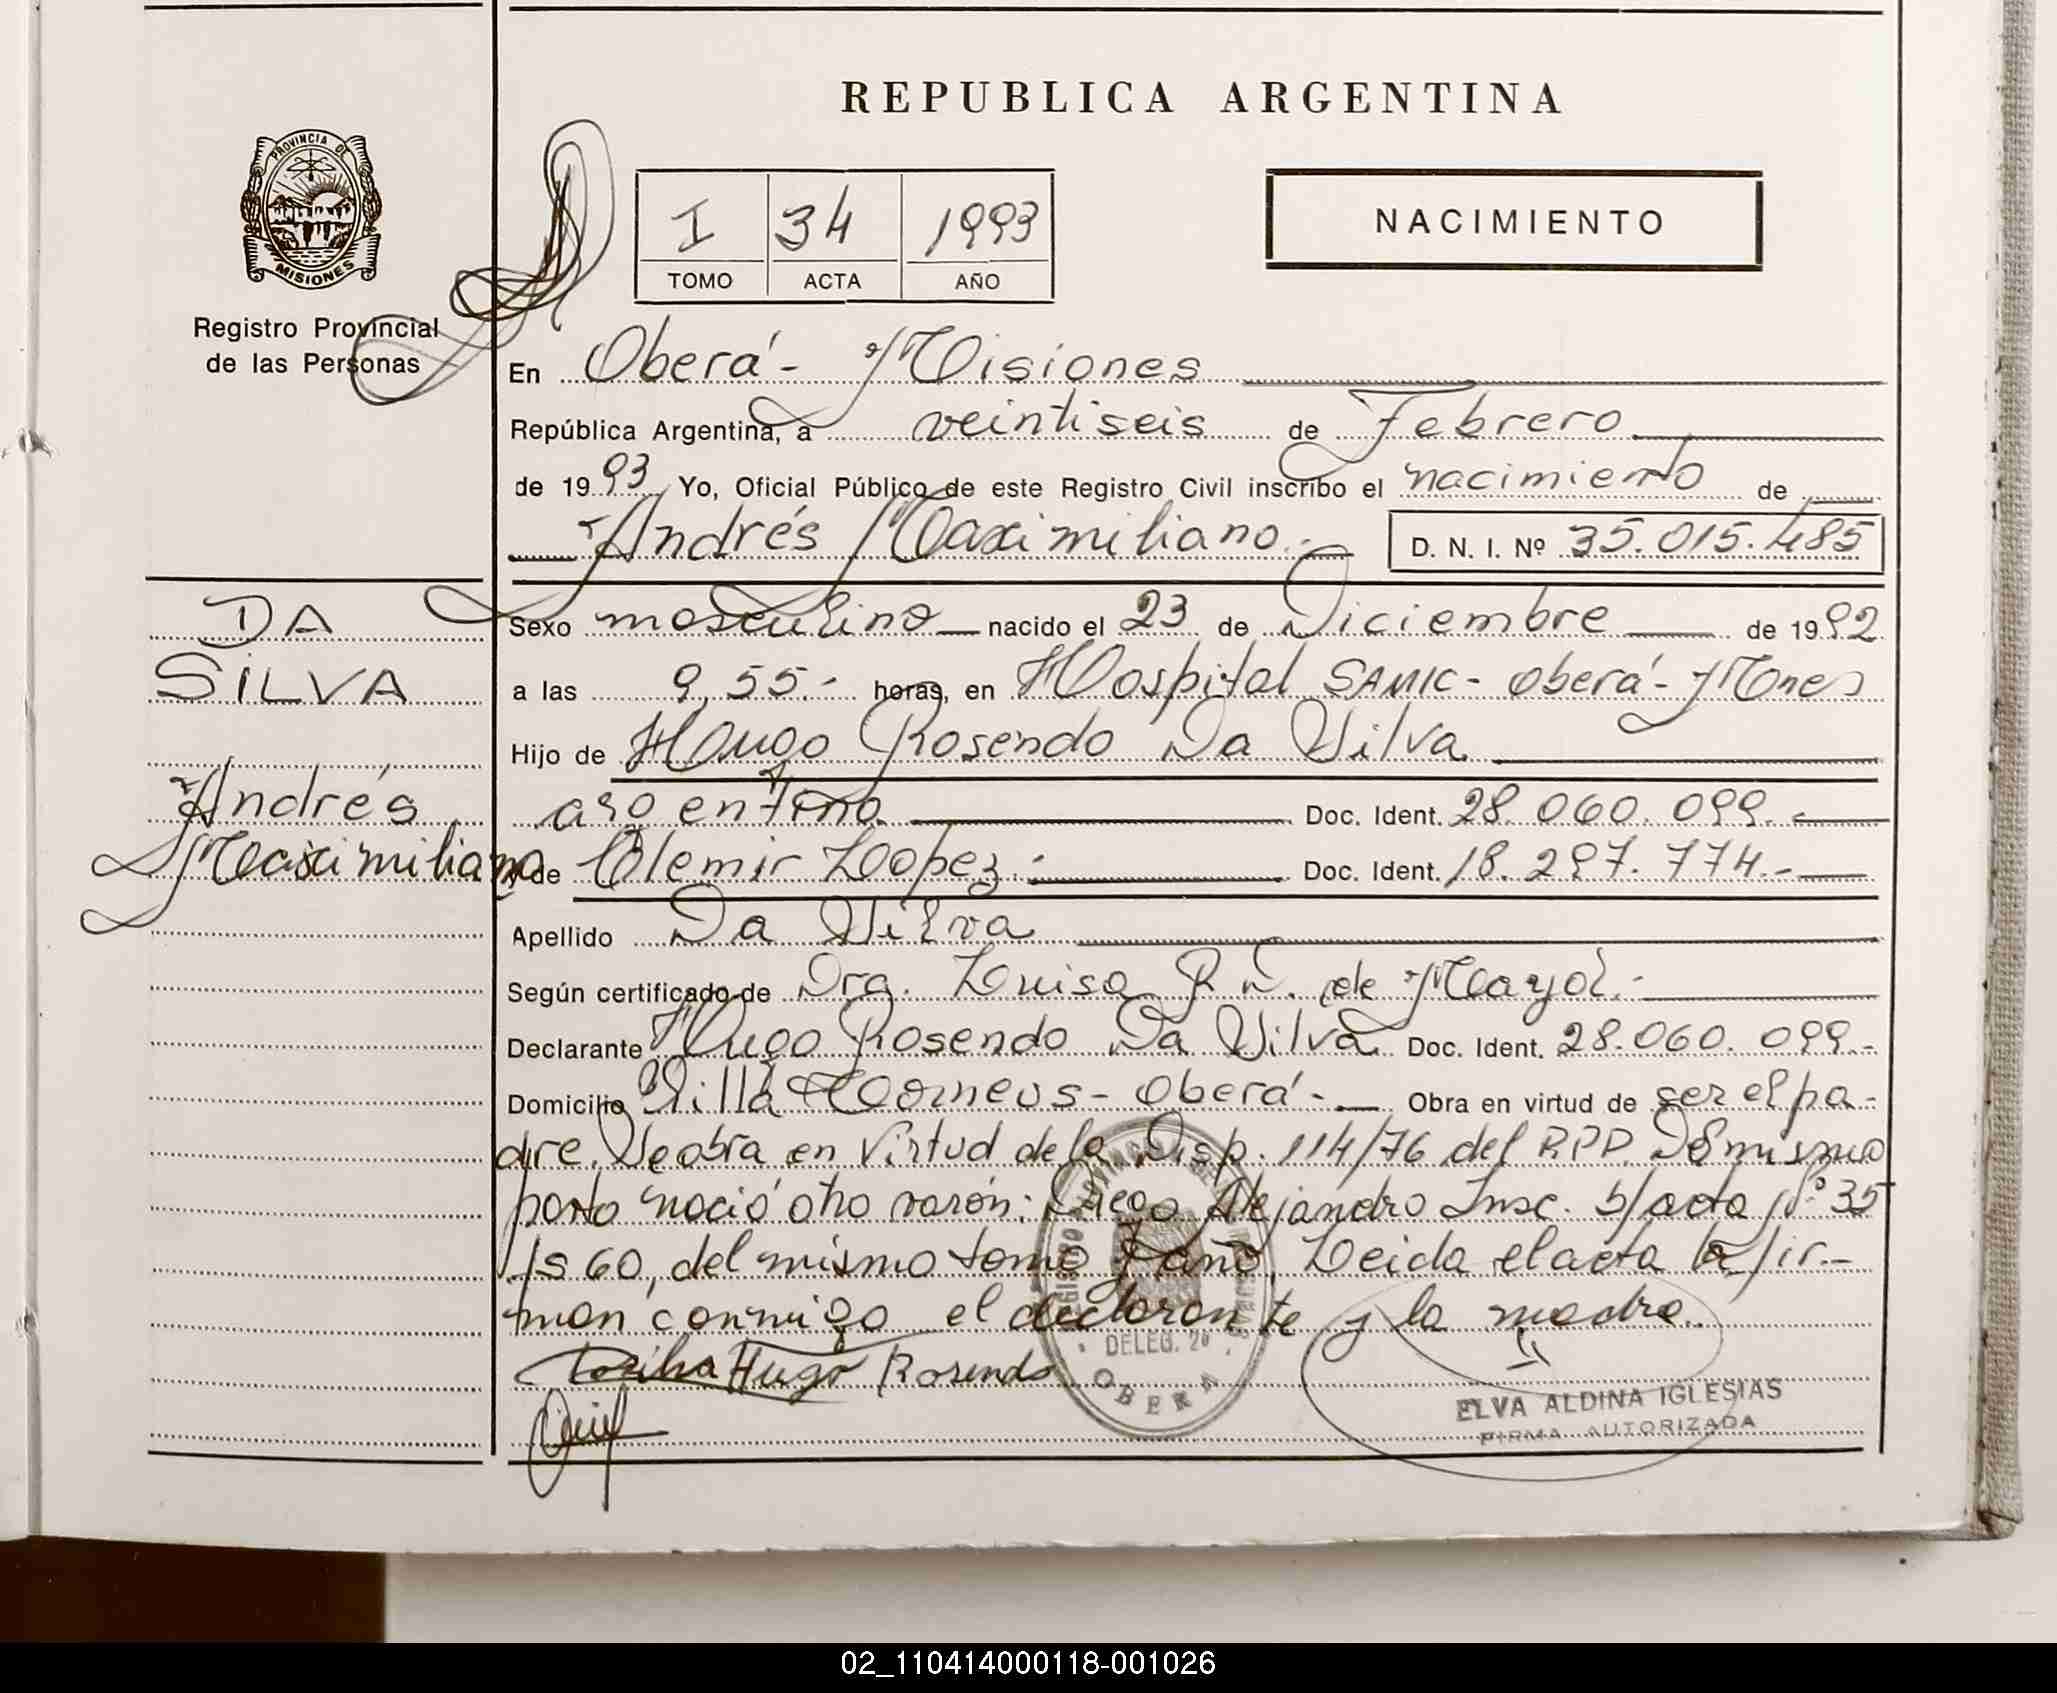 REPUBLICA ARGENTINA
PROVINCIA DE
MISIONES
Registro Provincial
de las Personas
I 34 1993
TOMO ACTA AÑO
NACIMIENTO
En Oberá - Misiones
República Argentina, a veintiseis de Febrero
de 1993 Yo, Oficial Público de este Registro Civil inscribo el nacimiento de
Andrés Maximiliano.- D. N. I. Nº 35.015.485
DA
SILVA
Andrés
Maximiliano
Sexo masculino nacido el 23 de Diciembre de 1992
a las 9,55.- horas, en Hospital SAMIC - Oberá - Mnes
Hijo de Hugo Rosendo Da Silva
argentino. Doc. Ident. 28.060.099.-
y de Olemir Lopez.- Doc. Ident. 18.297.774.-
Apellido Da Silva
Según certificado de Dra. Luisa de Mayol.-
Declarante Hugo Rosendo Da Silva Doc. Ident. 28.060.099.-
Domicilio Villa - Oberá.- Obra en virtud de ser el pa-
dre. Se obra en virtud de la Disp. 114/76 del RPP. Del mismo
parto nació otro varón: Diego Alejandro Insc. b/acta Nº 35
fs 60, del mismo tomo y año. Leida el acta la fir-
man conmigo el declarante y la madre.
Hugo Rosendo
DELEG. 20
OBERA
ELVA ALDINA IGLESIAS
FIRMA AUTORIZADA
02_110414000118-001026